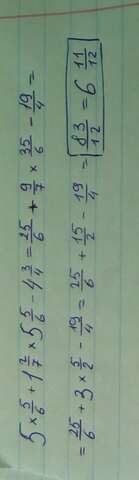 5 × 5/6 + 1 2/7 × 5 5/6 - 4 3/4 = 25/6 + 9/7 × 35/6 - 19/4 =
= 25/6 + 3 × 5/2 - 19/4 = 25/6 + 15/2 - 19/4 = 83/12 = 6 11/12